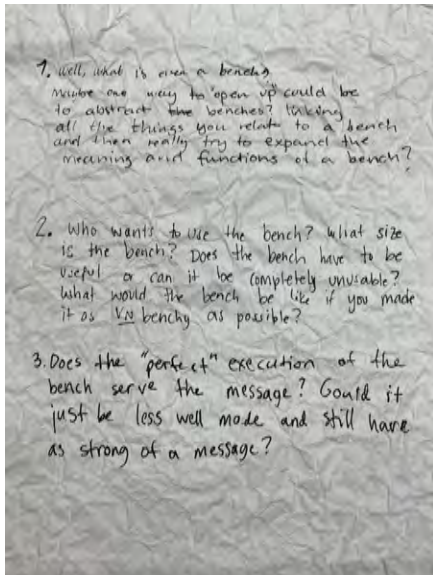 1. Well, what is even a bench?
Maybe one way to "open up" could be
to abstract the benches? Taking
all the things you relate to a bench
and then really try to expand the
meaning and functions of a bench?
2. Who wants to use the bench? What size
is the bench? Does the bench have to be
useful or can it be completely unusable?
What would the bench be like if you made
it as UN benchy as possible?
3. Does the "perfect" execution of the
bench serve the message? Could it
just be less well made and still have
as strong of a message?